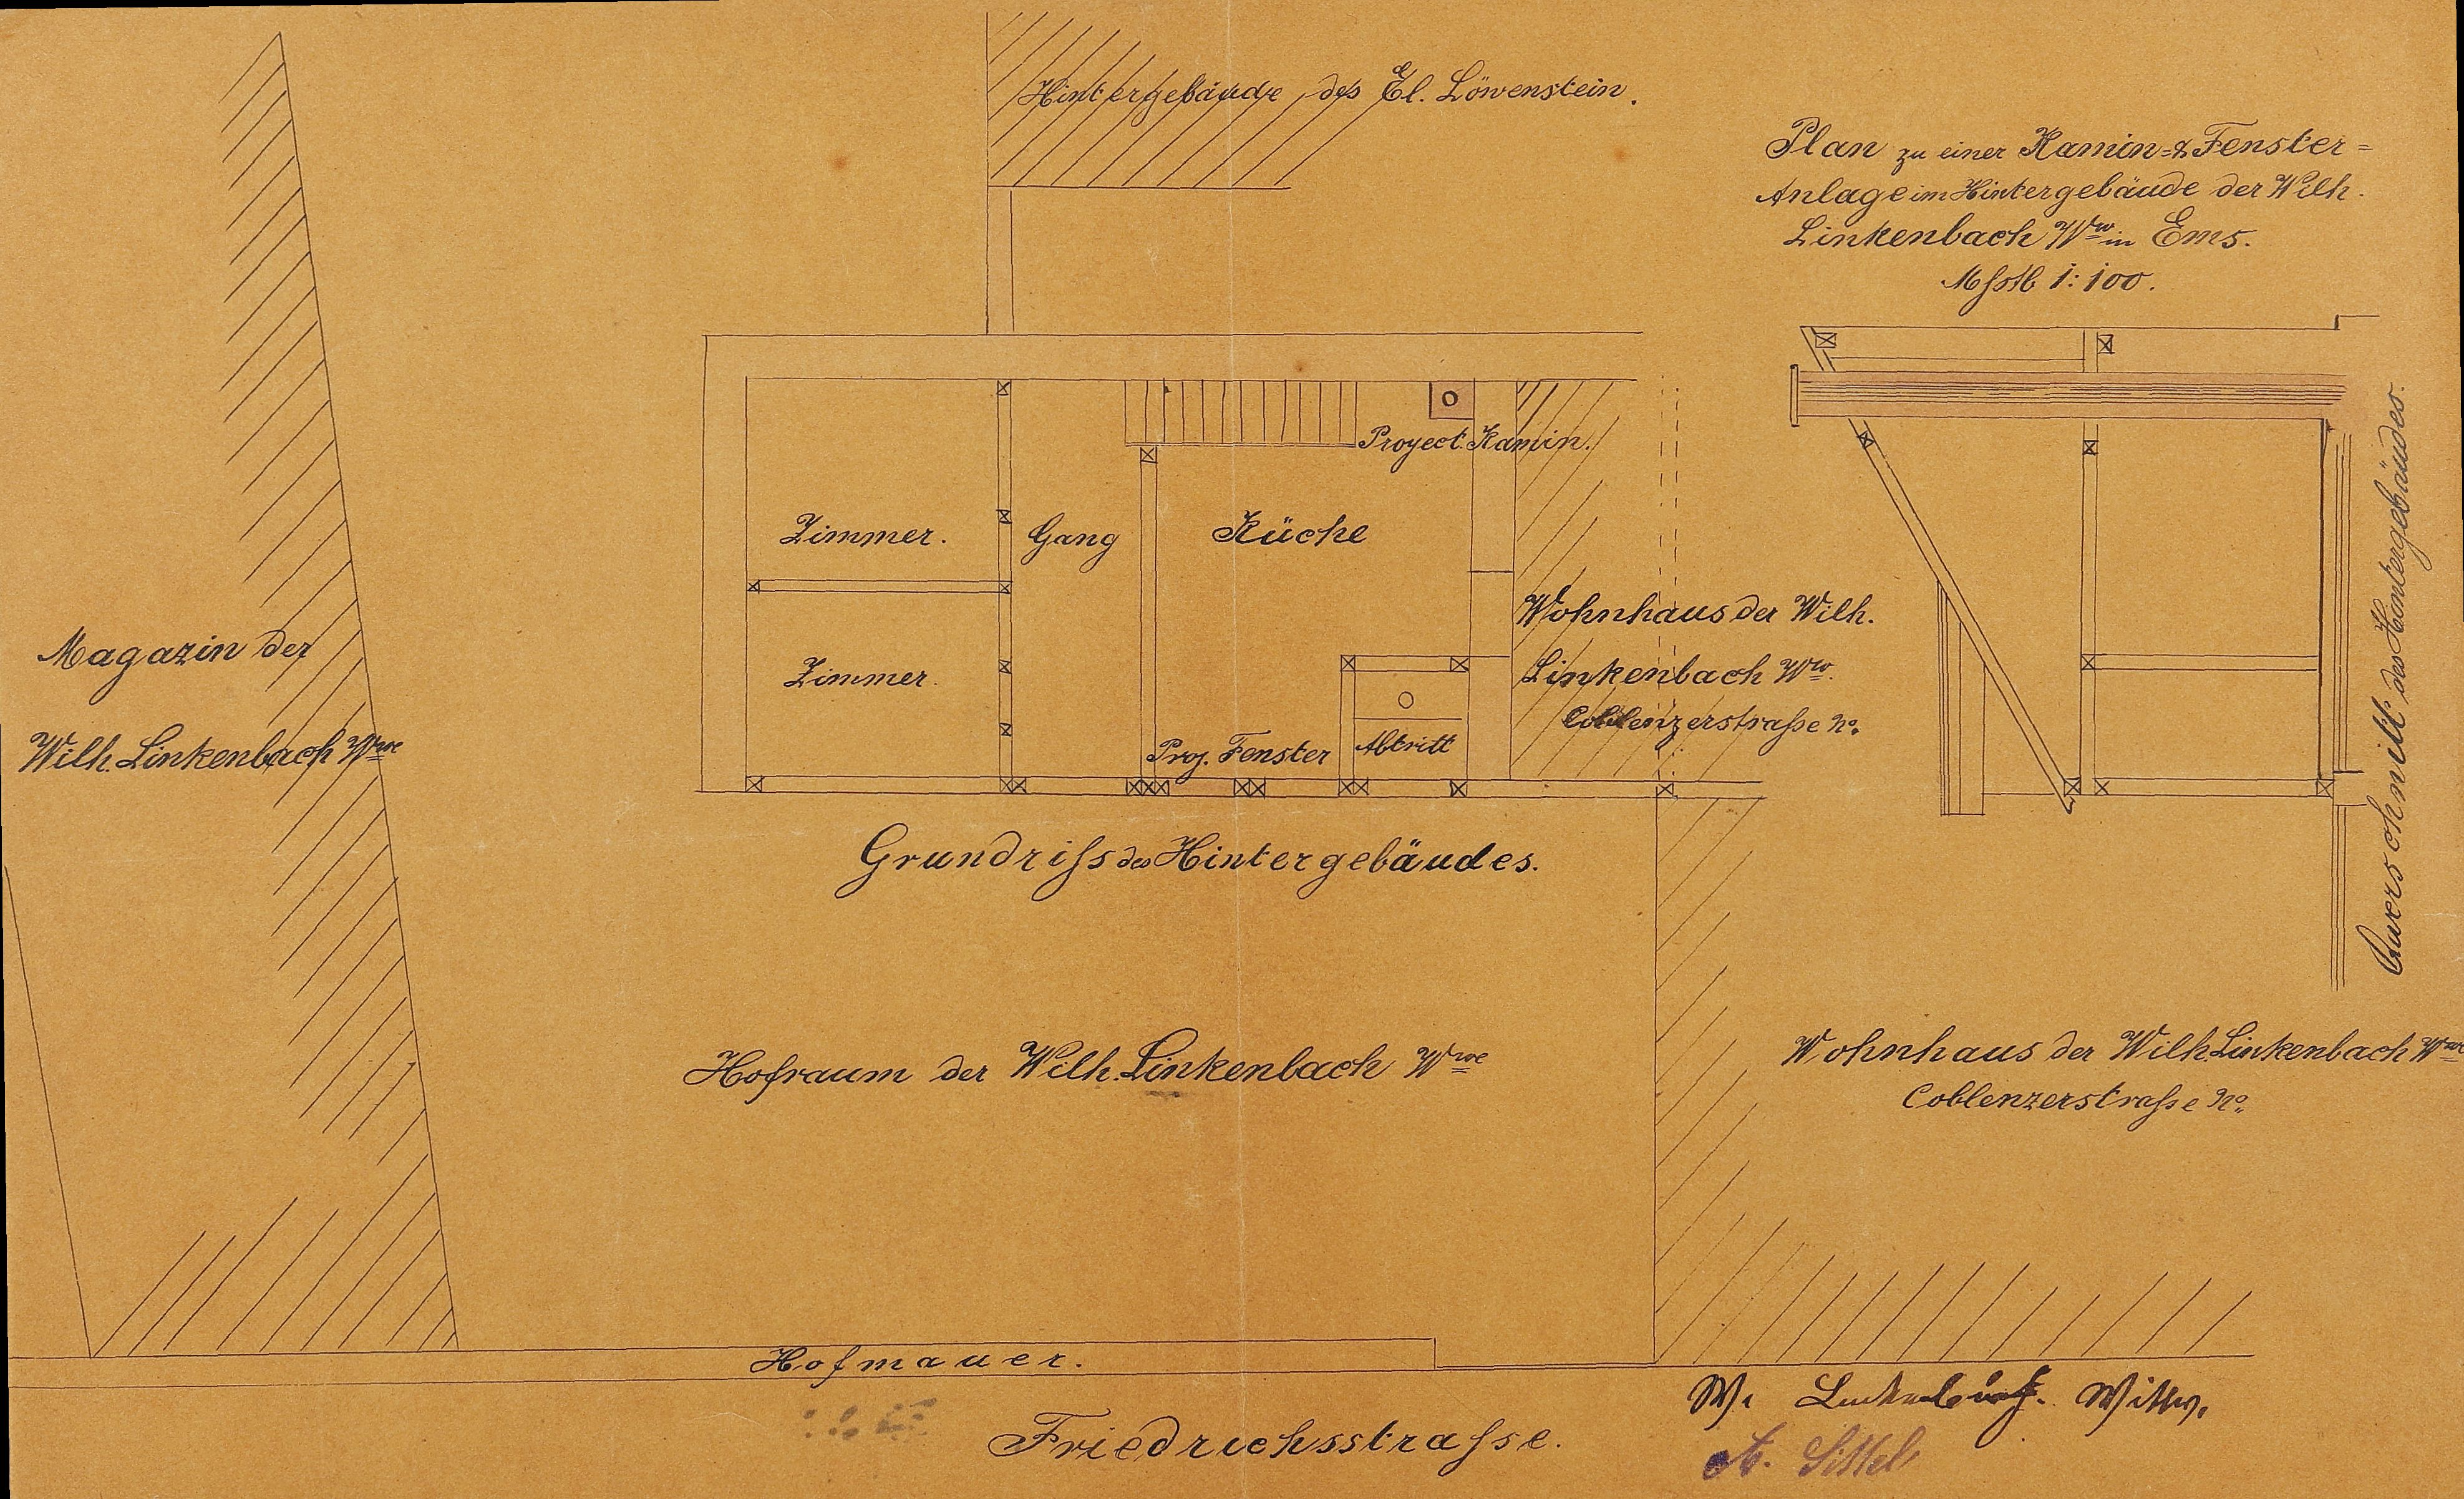 Hintergebäude des El. Löwenstein.
Plan zu einer Kamin= & Fenster=
Anlage im Hintergebäude der Wilh.
Linkenbach Ww in Ems.
Msstb 1:100.
Proyect. Kamin.
Zimmer.
Gang
Küche
Zimmer.
Proj. Fenster
Abtritt
Wohnhaus der Wilh.
Linkenbach Ww.
Coblenzerstraße No.
Magazin der
Wilh. Linkenbach Wwe
Grundriß des Hintergebäudes.
Querschnitt des Hintergebäudes.
Hofraum der Wilh. Linkenbach Wwe
Wohnhaus der Wilh. Linkenbach Wwe
Coblenzerstraße No.
Hofmauer.
Friedrichsstraße.
W. Linkenbach. Wittw.
A.